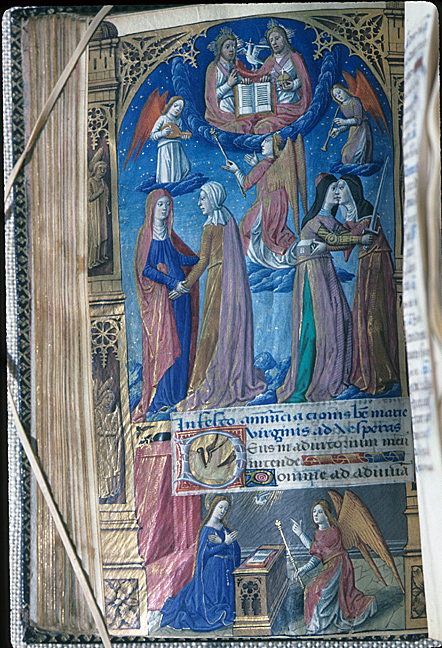 In festo annūciacionis bē marie
Virginis ad vesperas
Deus in adiutorium meū
intende
Domine ad adiuuā